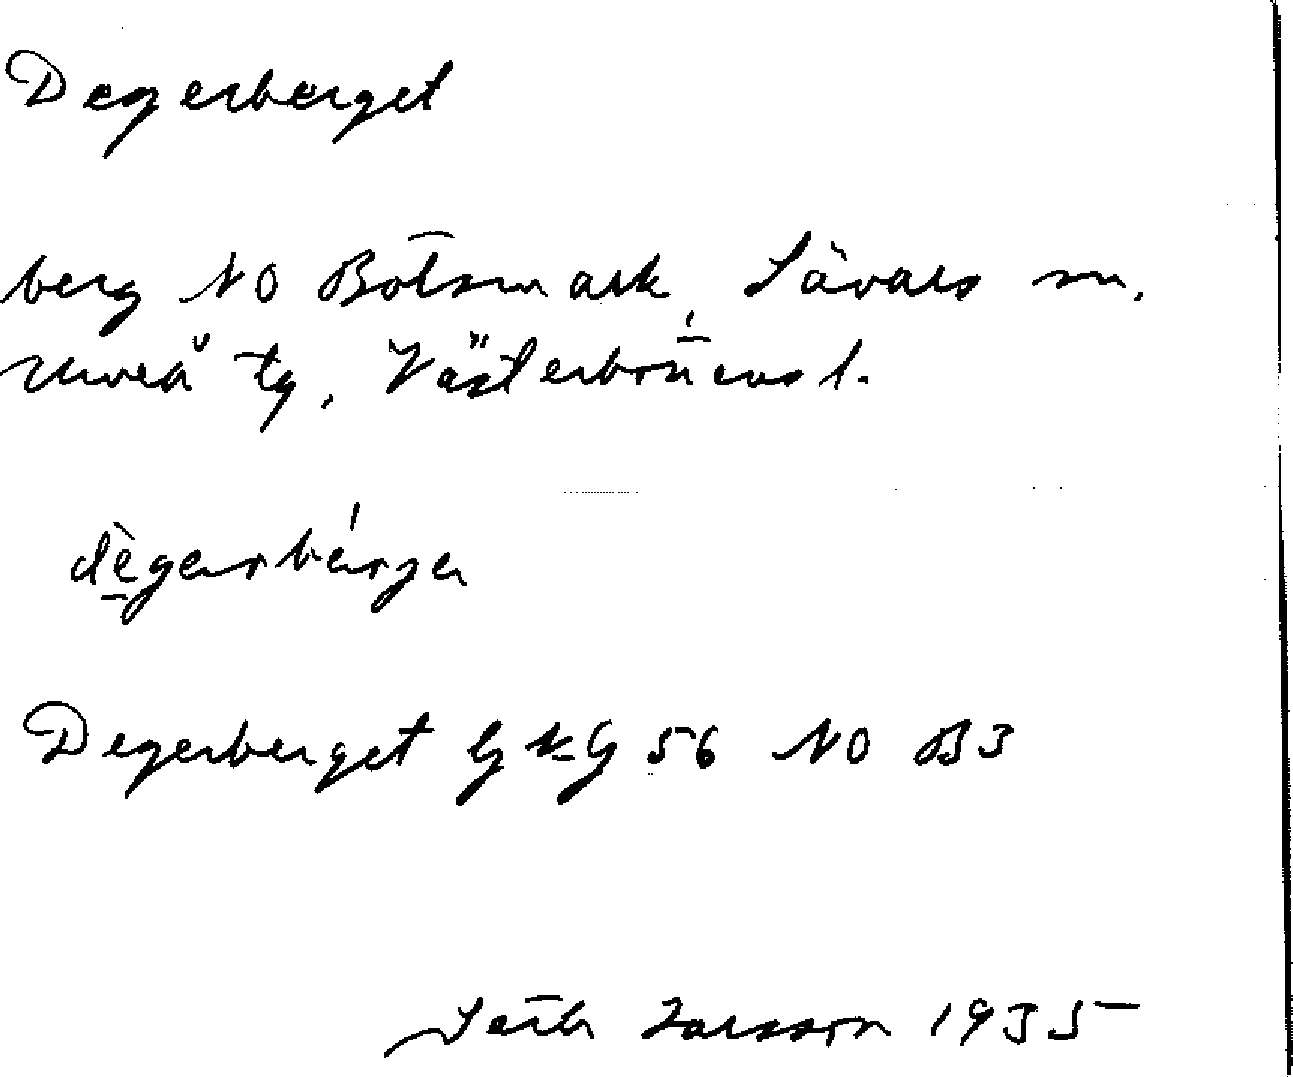 Degerberget
berg NO Botsmark, Sävars sn.
Umeå tg, Västerbottens l.
dègerbérjer
Degerberget GKG 56 NO B3
Seth Larsson 1935